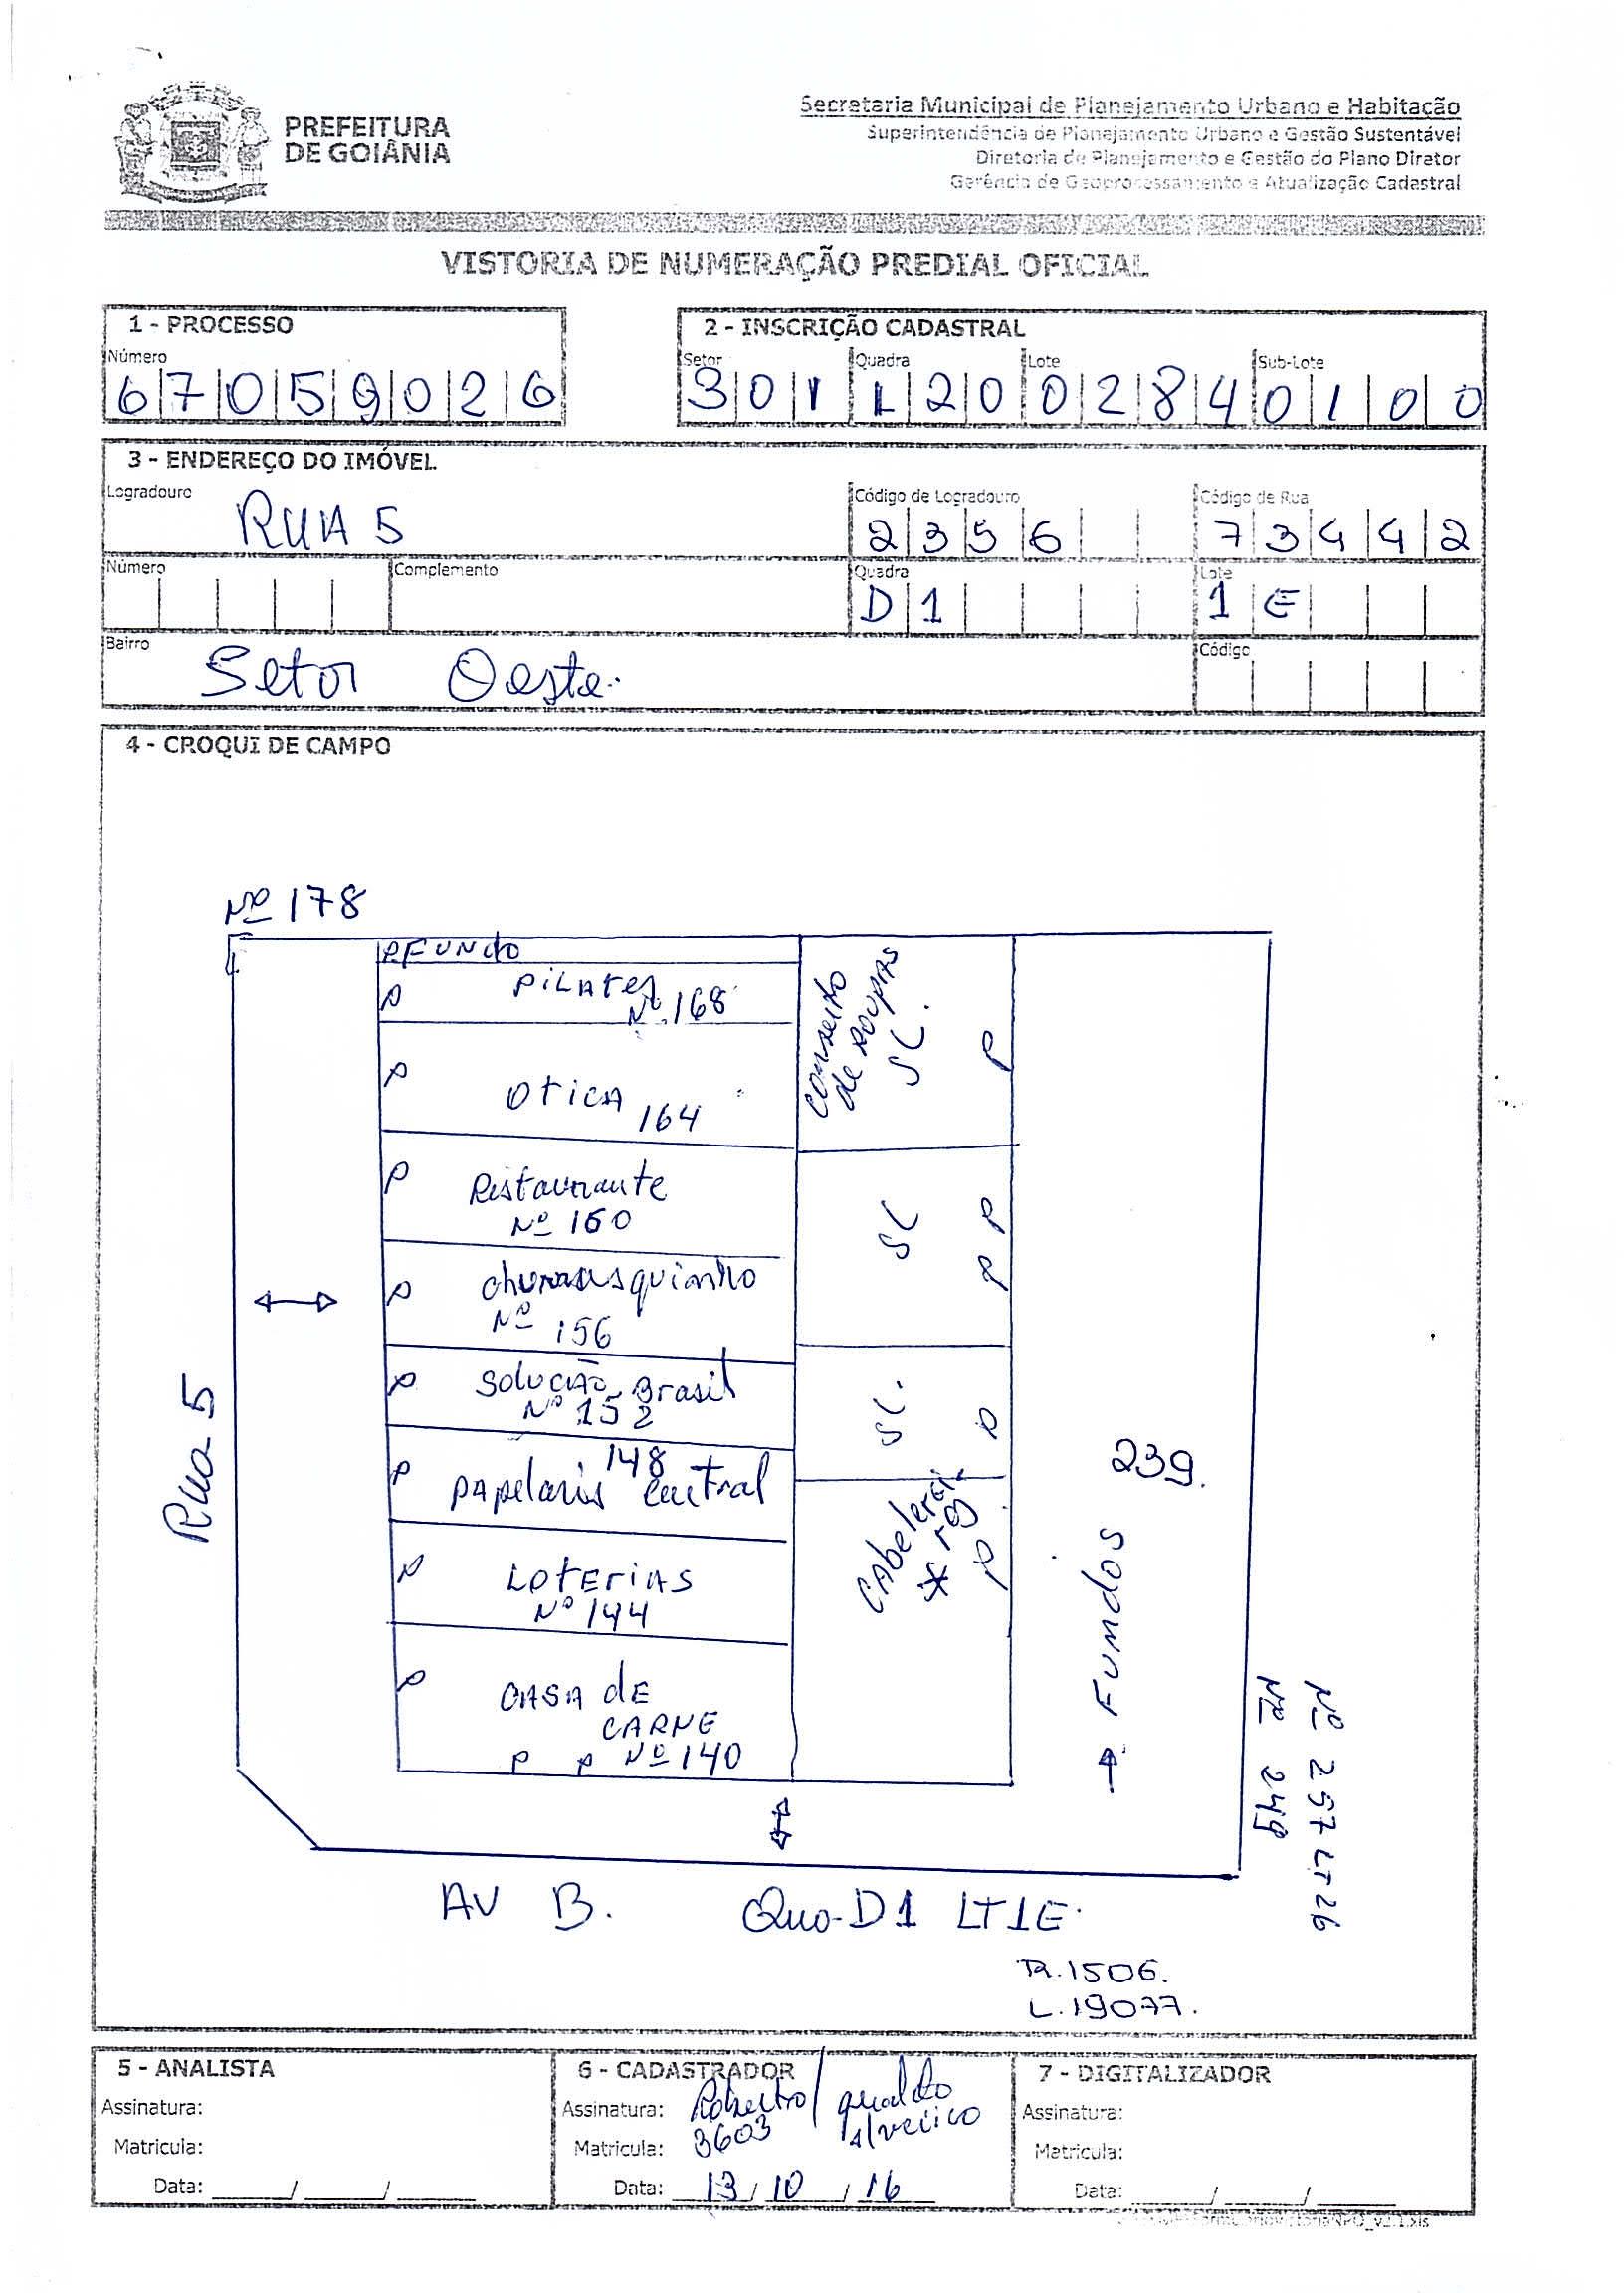 PREFEITURA
DE GOIÂNIA
Secretaria Municipal de Planejamento Urbano e Habitação
Superintendência de Planejamento Urbano e Gestão Sustentável
Diretoria de Planejamento e Gestão do Plano Diretor
Gerência de Geoprocessamento e Atualização Cadastral
VISTORIA DE NUMERAÇÃO PREDIAL OFICIAL
1 - PROCESSO
Número
67059026
2 - INSCRIÇÃO CADASTRAL
Setor Quadra Lote Sub-Lote
30112002840100
3 - ENDEREÇO DO IMÓVEL
Logradouro Código de Logradouro Código de Rua
RUA 5 2356 73442
Número Complemento Quadra Lote
D1 1E
Bairro Código
Setor Oeste.
4 - CROQUI DE CAMPO
Nº 178
PFUNDO
P PILATES
Nº 168
P OTICA 164
P Restaurante
Nº 160
P churrasquinho
Nº 156
P SOLUCÃO Brasil
Nº 152
148
P papelaria central
P LOTERIAS
Nº 144
P CASA dE
CARNE
P P Nº 140
conserto
de ROUPAS
SL.
P
SL
P P
SL.
P
CAbelerei
* ros
P
239.
→ Fundos
Rua 5
Nº 257 LT 26
Nº 249
AV B. Qua-D1 LT1E.
R.1506.
L.19077.
5 - ANALISTA
Assinatura:
Matricula:
Data: ____/____/____
6 - CADASTRADOR
Assinatura: Roberto /
Matricula: 3603
Data: 13/10/16
7 - DIGITALIZADOR
Assinatura:
Matricula:
Data: ____/____/____